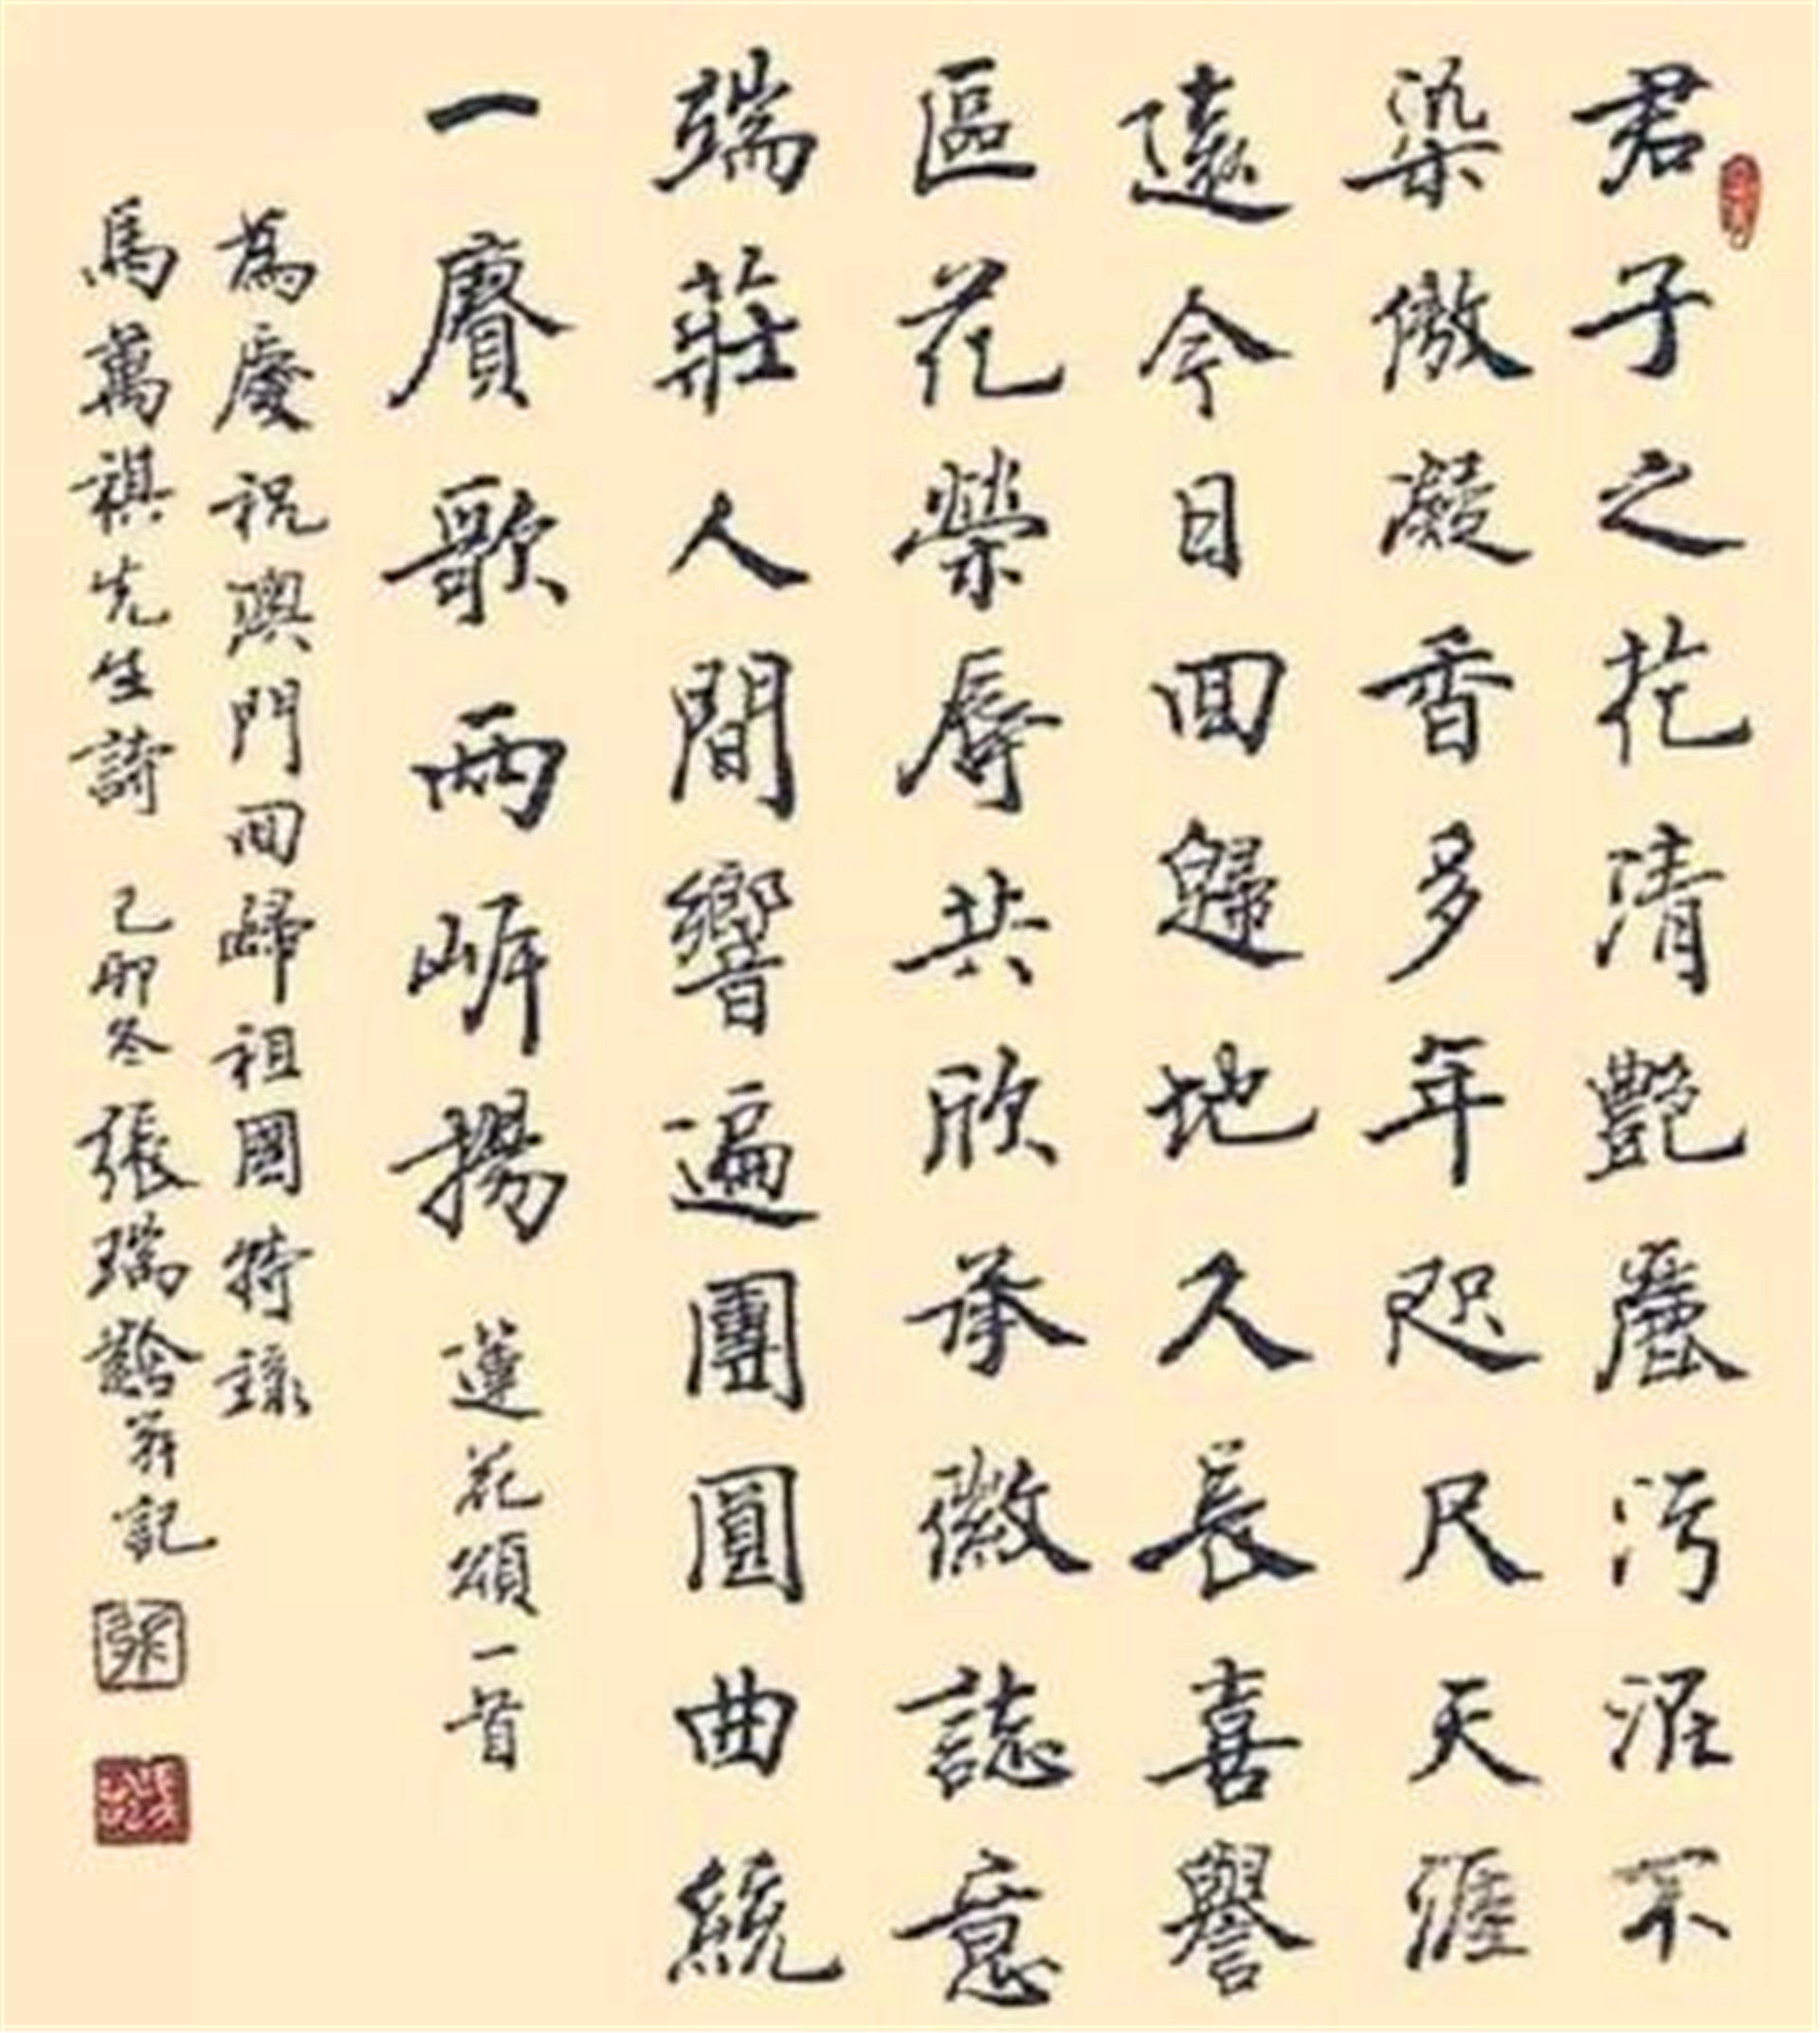 君子之花清艷麗污泥不
染傲凝香多年咫尺天涯
遠今日回歸地久長喜譽
區花榮辱共欣承徽誌意
端莊人間響遍團圓曲統
一賡歌兩岸揚 蓮花頌一首
為慶祝澳門回歸祖國特錄
馬萬祺先生詩 己卯冬張瑞齡并記
張